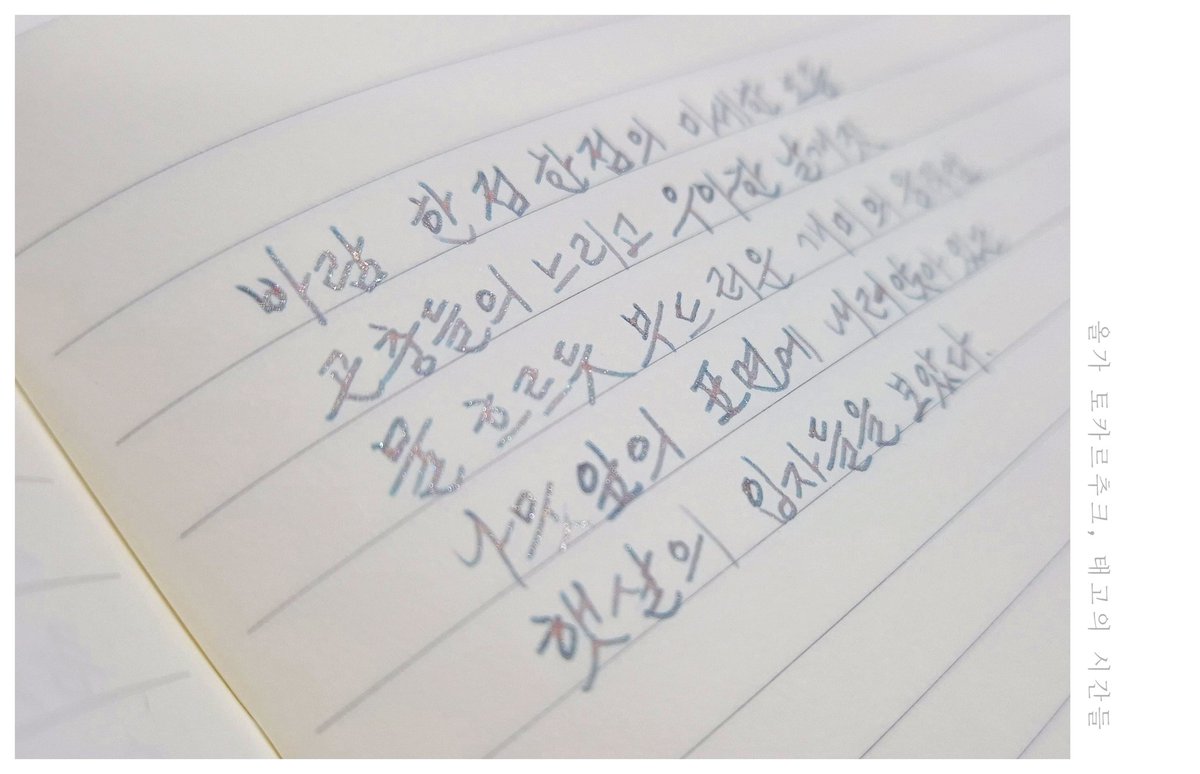 바람 한 점 한 점의 미세한 요동
곤충들의 느리고 우아한 날갯짓
물 흐르듯 부드러운 개미의 움직임
나뭇잎의 표면에 내려앉아 있는
햇살의 입자들을 보았다.
올가 토카르추크, 태고의 시간들